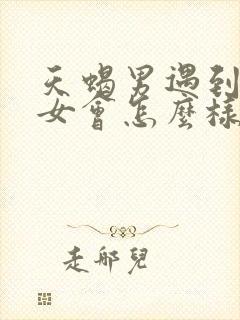 天蝎男遇到
女會怎麼樣
走邪兒